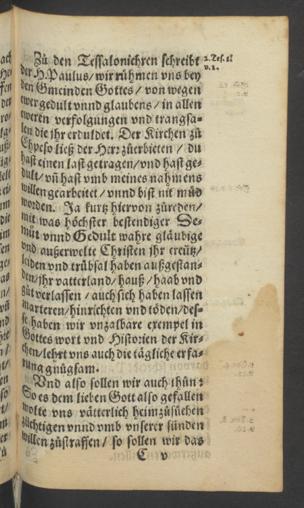 Zü den Tessalonichren schreibt
der H. Paulus/ wir rühmen vns bey
den Gmeinden Gottes / von wegen
ewer gedult vnnd glaubens / in allen
eweren verfolgungen vnd trangsa-
len die jhr erduldet. Der Kirchen zü
Epheso ließ der Herr züerbieten / du
hast einen last getragen/ vnd hast ge-
dult/ vñ hast vmb meines nahmens
willen gearbeitet / vnnd bist nit müd
worden. Ja kurtz hiervon züreden/
mit was höchster bestendiger De-
müt vnnd Gedult wahre gläubige
vnd/ außerwelte Christen jhr creütz/
leiden vnd trübsal haben außgestan-
den/ jhr vatterland/ hauß/ haab vnd
güt verlassen / auch sich haben lassen
marteren/ hinrichten vnd töden/ des-
se haben wir vnzalbare exempel in
Gottes wort vnd Historien der Kir-
chen/ lehrt vns auch die tägliche erfa-
rung gnügsam.
Vnd also sollen wir auch thün:
So es dem lieben Gott also gefallen
wolte vns vätterlich heimzüsüchen
züchtigen vnnd vmb vnserer sünden
willen züstraffen / so sollen wir das
C v
2. Tes. 1.
v. 1.